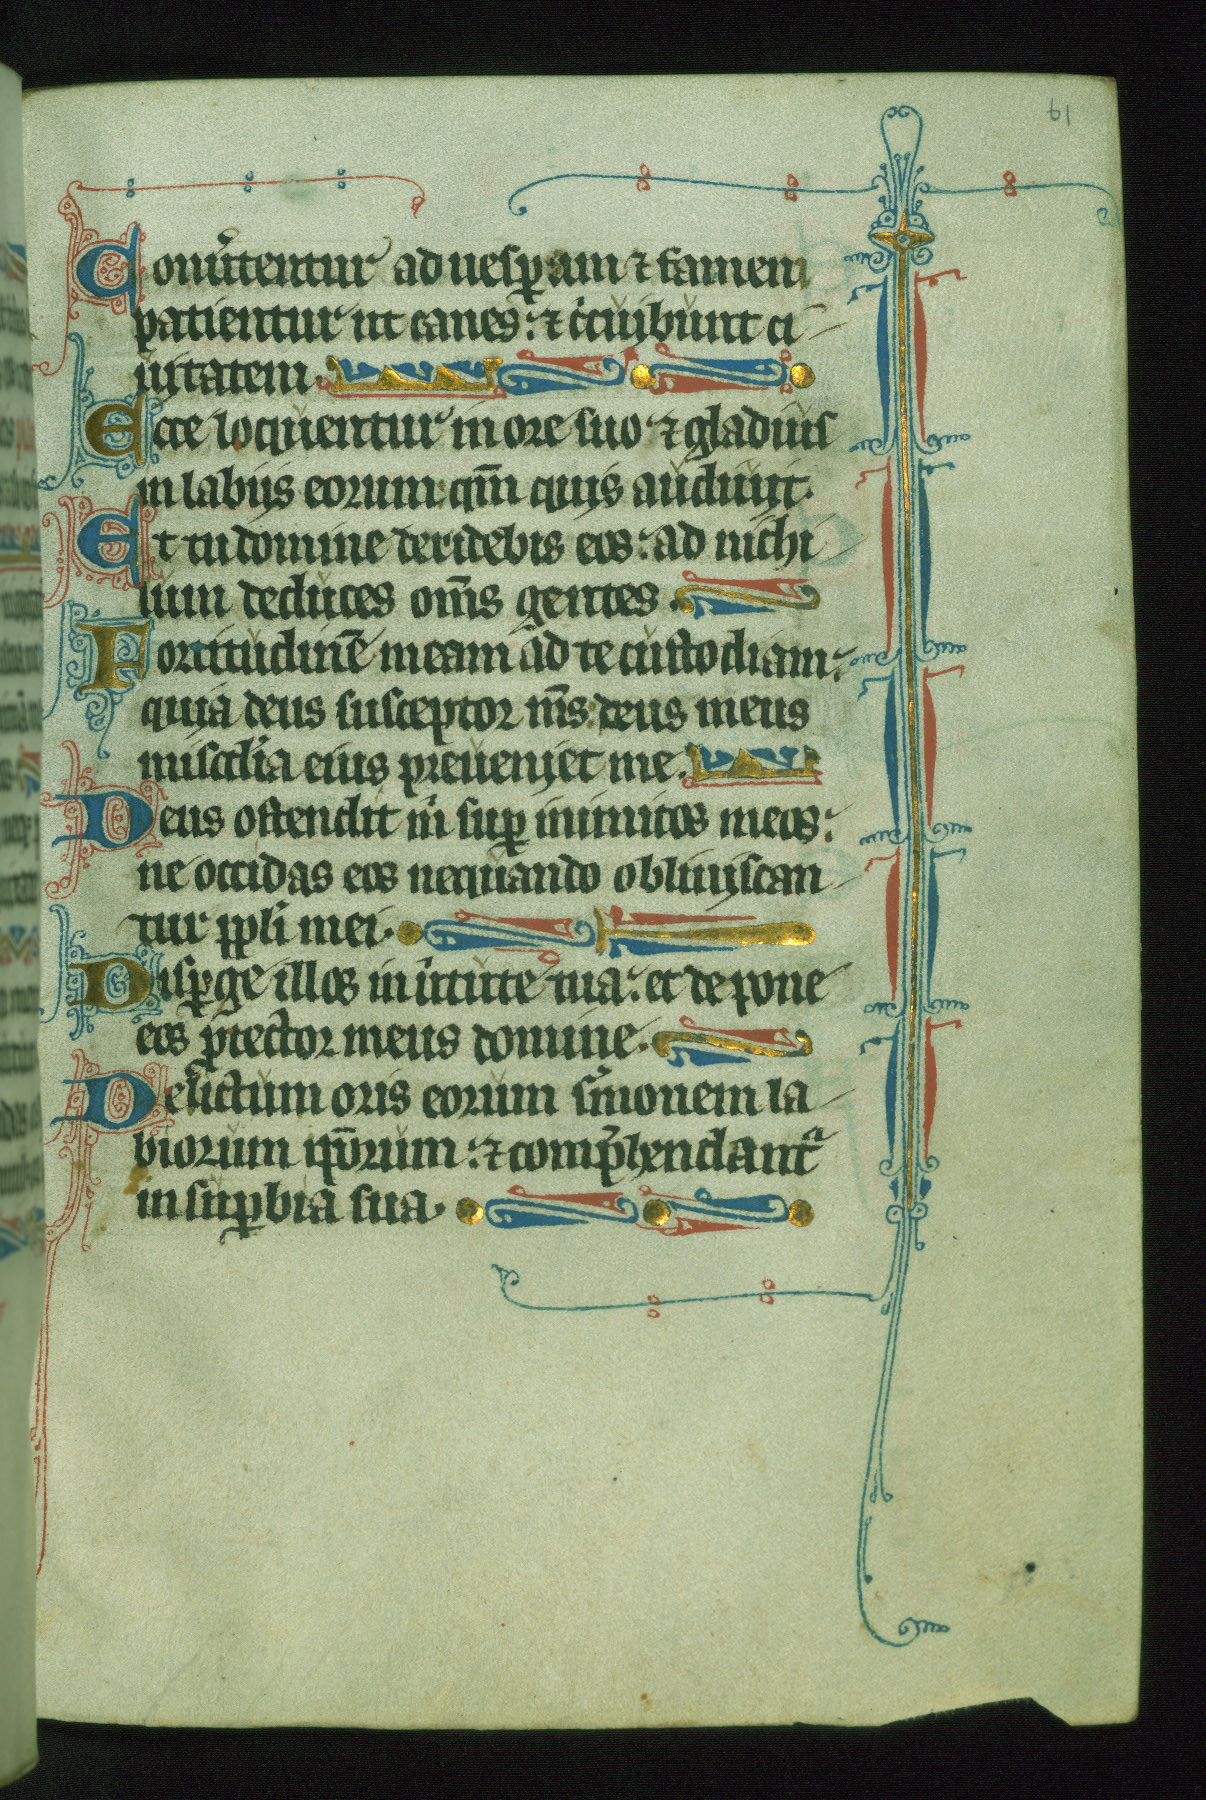 91
Conu̾tentur ad uesp̱am ⁊ famem
patientur ut canes: ⁊ c̾cuibunt ci
uitatem.
Ecce loquentur in ore suo ⁊ gladius
in labiis eorum qm̄ quis audiuit.
Et tu domine deridebis eos: ad nichi
lum deduces om̄s gentes.
Fortitudinē meam ad te custodiam:
quia deus susceptor m̄s deus meus
misc̾dia eius preueniet me.
Deus ostendit m̾ sup̱ inimicos meos:
ne occidas eos nequando obliuiscan
tur pp̱li mei.
Disp̱ge illos in u̾tute tua: et depone
eos p̱tector meus domine.
Delictum oris eorum s̾monem la
biorum ip̄orum: ⁊ comp̾hendant᷑
in sup̱bia sua.